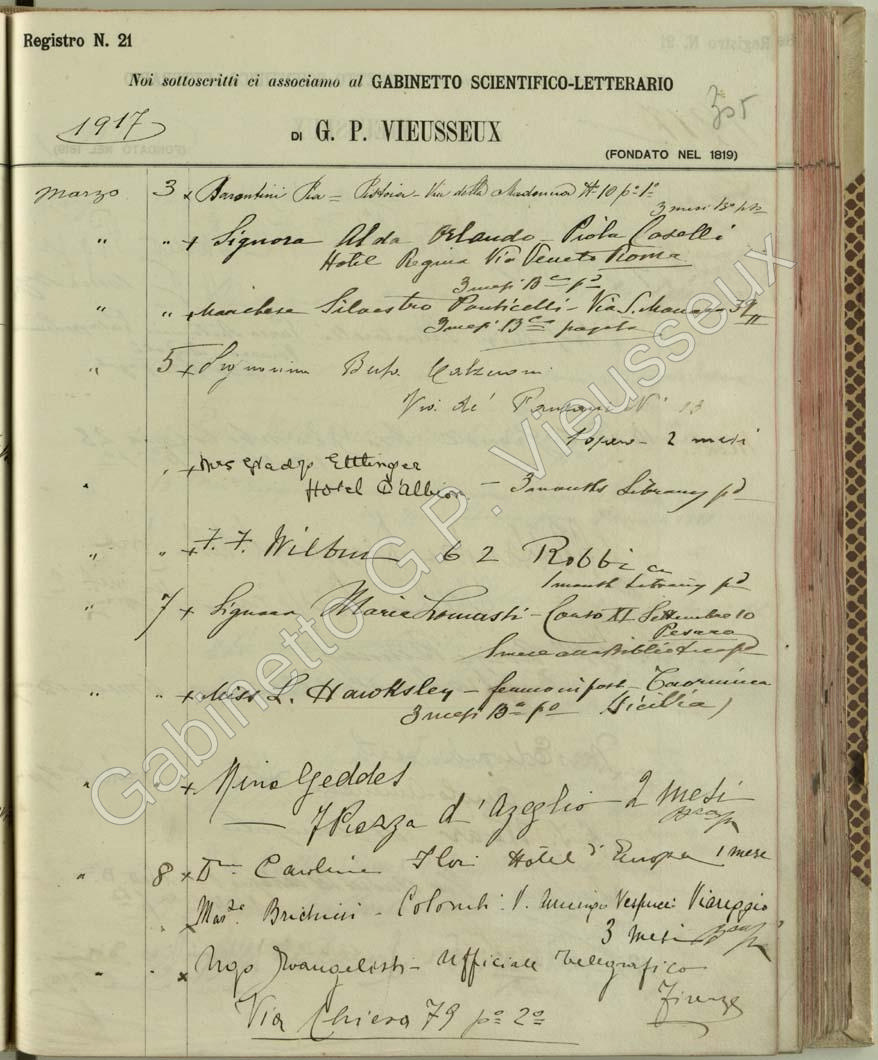 Registro N. 21
Noi sottoscritti ci associamo al GABINETTO SCIENTIFICO-LETTERARIO
305
1917
DI G. P. VIEUSSEUX
(FONDATO NEL 1819)
Marzo 3 x Barontini Pia = Pistoia - Via della Madonna N° 10 p° 1°
3 mesi
" " x Signora Alda Orlando - Piola Caselli
Hotel Regina Via Veneto Roma
3 mesi Bca pd
" " x Marchese Silvestro Ponticelli - Via S. Monaca 39
3 mesi Bca pagata
" 5 x Signorina
Via de' Panzani N° 13
2 mesi
" x Mrs Gladys Ettlinger
Hotel d'Albion - 3 months Library pd
" " x F. F. Wilbur 62 Robbia
1 month Library pd
" 7 x Signora Maria - Corso XI Settembre 10
Pesaro
" " x Miss L. Hawksley - fermo in post - Taormina
3 mesi Ba po Sicilia
" x Mina Geddes
7 Piazza d'Azeglio 2 mesi
" 8 x Caroline Hôtel d'Europe 1 mese
x Colombi V. Vespucci Viareggio
3 mesi
" " x Ugo Evangelisti - Ufficiale Telegrafico
Firenze
Via Chiesa 79 po 2o
Gabinetto G.P. Vieusseux